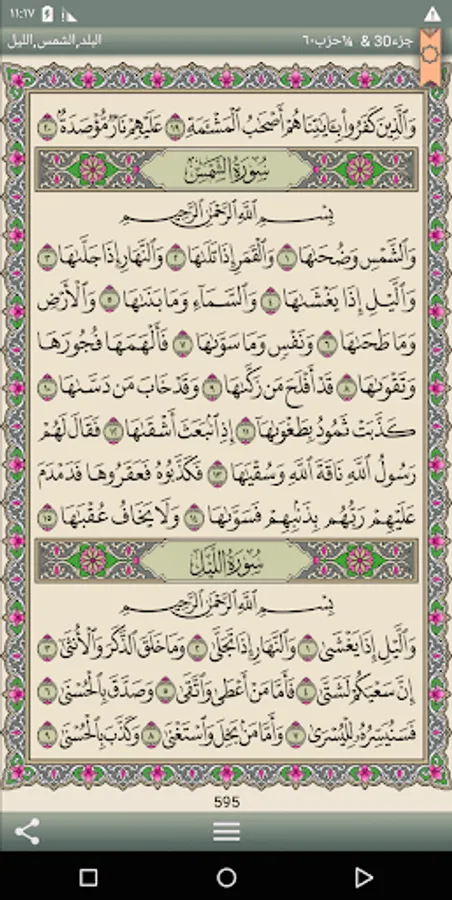 ١١:١٧
جزء30 & ¼حزب٦٠
البلد,الشمس,الليل
وَٱلَّذِينَ كَفَرُوا۟ بِـَٔايَـٰتِنَا هُمْ أَصْحَـٰبُ ٱلْمَشْـَٔمَةِ ١٩ عَلَيْهِمْ نَارٌ مُّؤْصَدَةٌۢ ٢٠
سُورَةُ الشَّمْسِ
بِسْمِ ٱللَّهِ ٱلرَّحْمَـٰنِ ٱلرَّحِيمِ
وَٱلشَّمْسِ وَضُحَىٰهَا ١ وَٱلْقَمَرِ إِذَا تَلَىٰهَا ٢ وَٱلنَّهَارِ إِذَا جَلَّىٰهَا ٣
وَٱلَّيْلِ إِذَا يَغْشَىٰهَا ٤ وَٱلسَّمَآءِ وَمَا بَنَىٰهَا ٥ وَٱلْأَرْضِ
وَمَا طَحَىٰهَا ٦ وَنَفْسٍ وَمَا سَوَّىٰهَا ٧ فَأَلْهَمَهَا فُجُورَهَا
وَتَقْوَىٰهَا ٨ قَدْ أَفْلَحَ مَن زَكَّىٰهَا ٩ وَقَدْ خَابَ مَن دَسَّىٰهَا ١٠
كَذَّبَتْ ثَمُودُ بِطَغْوَىٰهَآ ١١ إِذِ ٱنۢبَعَثَ أَشْقَىٰهَا ١٢ فَقَالَ لَهُمْ
رَسُولُ ٱللَّهِ نَاقَةَ ٱللَّهِ وَسُقْيَـٰهَا ١٣ فَكَذَّبُوهُ فَعَقَرُوهَا فَدَمْدَمَ
عَلَيْهِمْ رَبُّهُم بِذَنۢبِهِمْ فَسَوَّىٰهَا ١٤ وَلَا يَخَافُ عُقْبَـٰهَا ١٥
سُورَةُ اللَّيْلِ
بِسْمِ ٱللَّهِ ٱلرَّحْمَـٰنِ ٱلرَّحِيمِ
وَٱلَّيْلِ إِذَا يَغْشَىٰ ١ وَٱلنَّهَارِ إِذَا تَجَلَّىٰ ٢ وَمَا خَلَقَ ٱلذَّكَرَ وَٱلْأُنثَىٰٓ ٣
إِنَّ سَعْيَكُمْ لَشَتَّىٰ ٤ فَأَمَّا مَنْ أَعْطَىٰ وَٱتَّقَىٰ ٥ وَصَدَّقَ بِٱلْحُسْنَىٰ ٦
فَسَنُيَسِّرُهُۥ لِلْيُسْرَىٰ ٧ وَأَمَّا مَنۢ بَخِلَ وَٱسْتَغْنَىٰ ٨ وَكَذَّبَ بِٱلْحُسْنَىٰ ٩
595